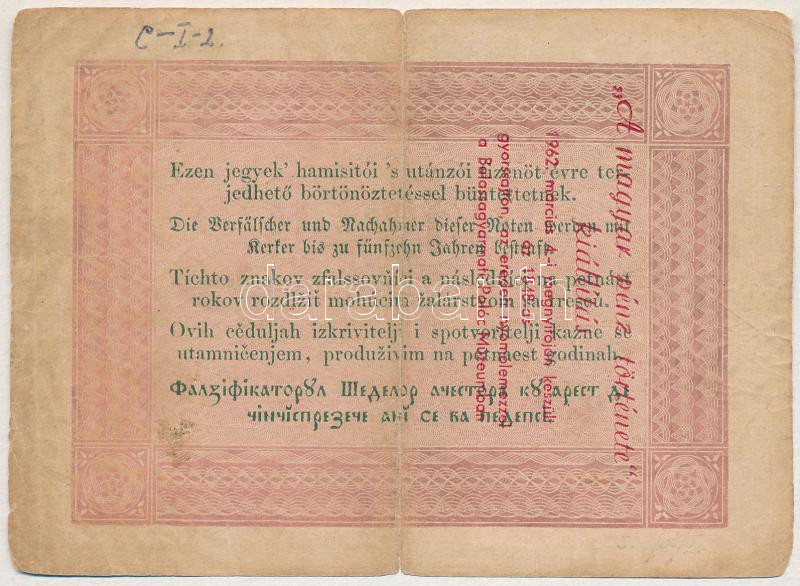 C-I-2.
Ezen jegyek' hamisitói 's utánzói tizenöt évre ter
jedhető börtönöztetéssel büntettetnek.
Die Verfälscher und Nachahmer dieser Noten werden mit
Kerker bis zu fünfzehn Jahren bestraft.
Tíchto znakov zfalssovňíki a následňíci na petnást
rokov rozdlžit mohúcím žalárstvom sa trescú.
Ovih cěduljah izkrivitelji i spotvoritelji kazne se
utamničenjem, produživim na petnaest godinah.
Фалзіфікаторꙋл Шеделор ачестора кꙋ арест де
чінчіспрезече ані се ва педепсі.
„A magyar pénz története"
kiállítás
1962. március 4.-i megnyitóján készült
gyorssajtón, az eredeti nyomólemezzel
a Balassagyarmati Palóc Múzeumban
darabanth